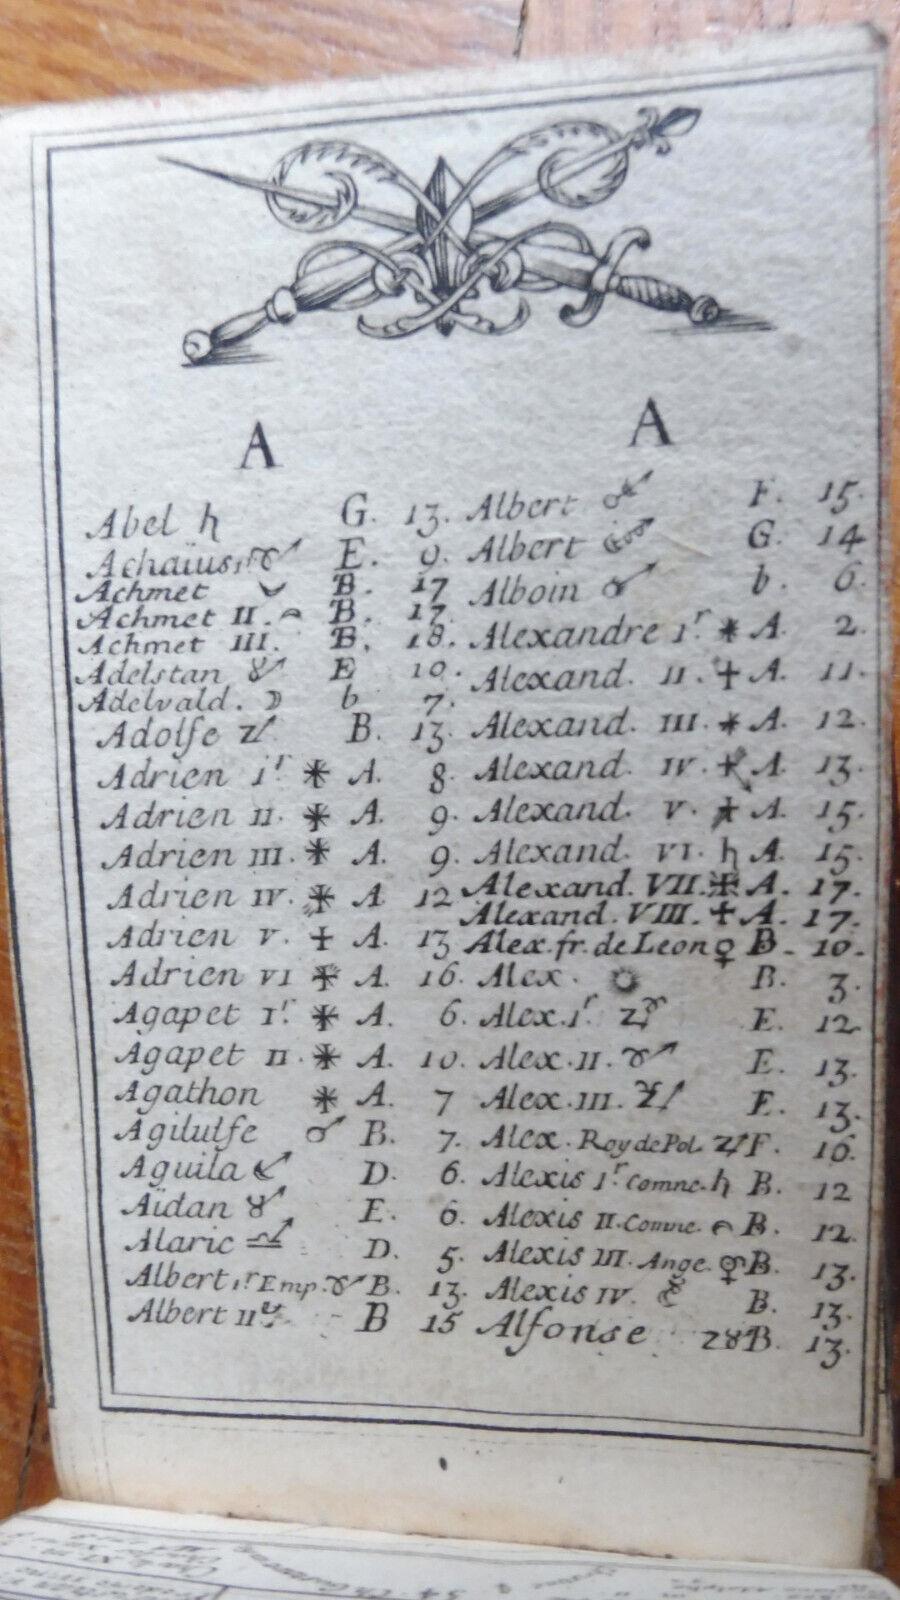 A
Abel ♄ G. 13.
Achaïus 1r ♈︎♂ E. 9.
Achmet B. 17
Achmet II. B. 17.
Achmet III. B. 18.
Adelstan ♉ E 10.
Adelvald. ☽ b 7.
Adolfe ♃ B. 13.
Adrien 1r * A. 8.
Adrien II. * A. 9.
Adrien III. * A. 9.
Adrien IV. * A 12
Adrien V. + A. 13
Adrien VI * A. 16.
Agapet 1r. * A. 6.
Agapet II. * A. 10.
Agathon * A. 7
Agilulfe ♂ B. 7.
Aguila D. 6.
Aïdan ♉ E. 6.
Alaric ♎ D. 5.
Albert 1r Emp. ♈ B. 13.
Albert II B 15
A
Albert ♂ F. 15.
Albert G. 14
Alboin ♂ b. 6.
Alexandre 1r * A. 2.
Alexand. II. + A. 11.
Alexand. III. * A. 12.
Alexand. IV. + A. 13.
Alexand. V. + A. 15.
Alexand. VI. ♄ A. 15.
Alexand. VII. * A. 17.
Alexand. VIII. + A. 17.
Alex. fr. de Leon ♀ B. 10.
Alex. B. 3.
Alex. 1r E. 12
Alex. II. ♈ E. 13.
Alex. III. E. 13.
Alex. Roy de Pol. ♃ F. 16.
Alexis 1r Comne. ♄ B. 12
Alexis II. Comne. B. 12.
Alexis III. Ange. B. 13.
Alexis IV. B. 13.
Alfonse B. 13.